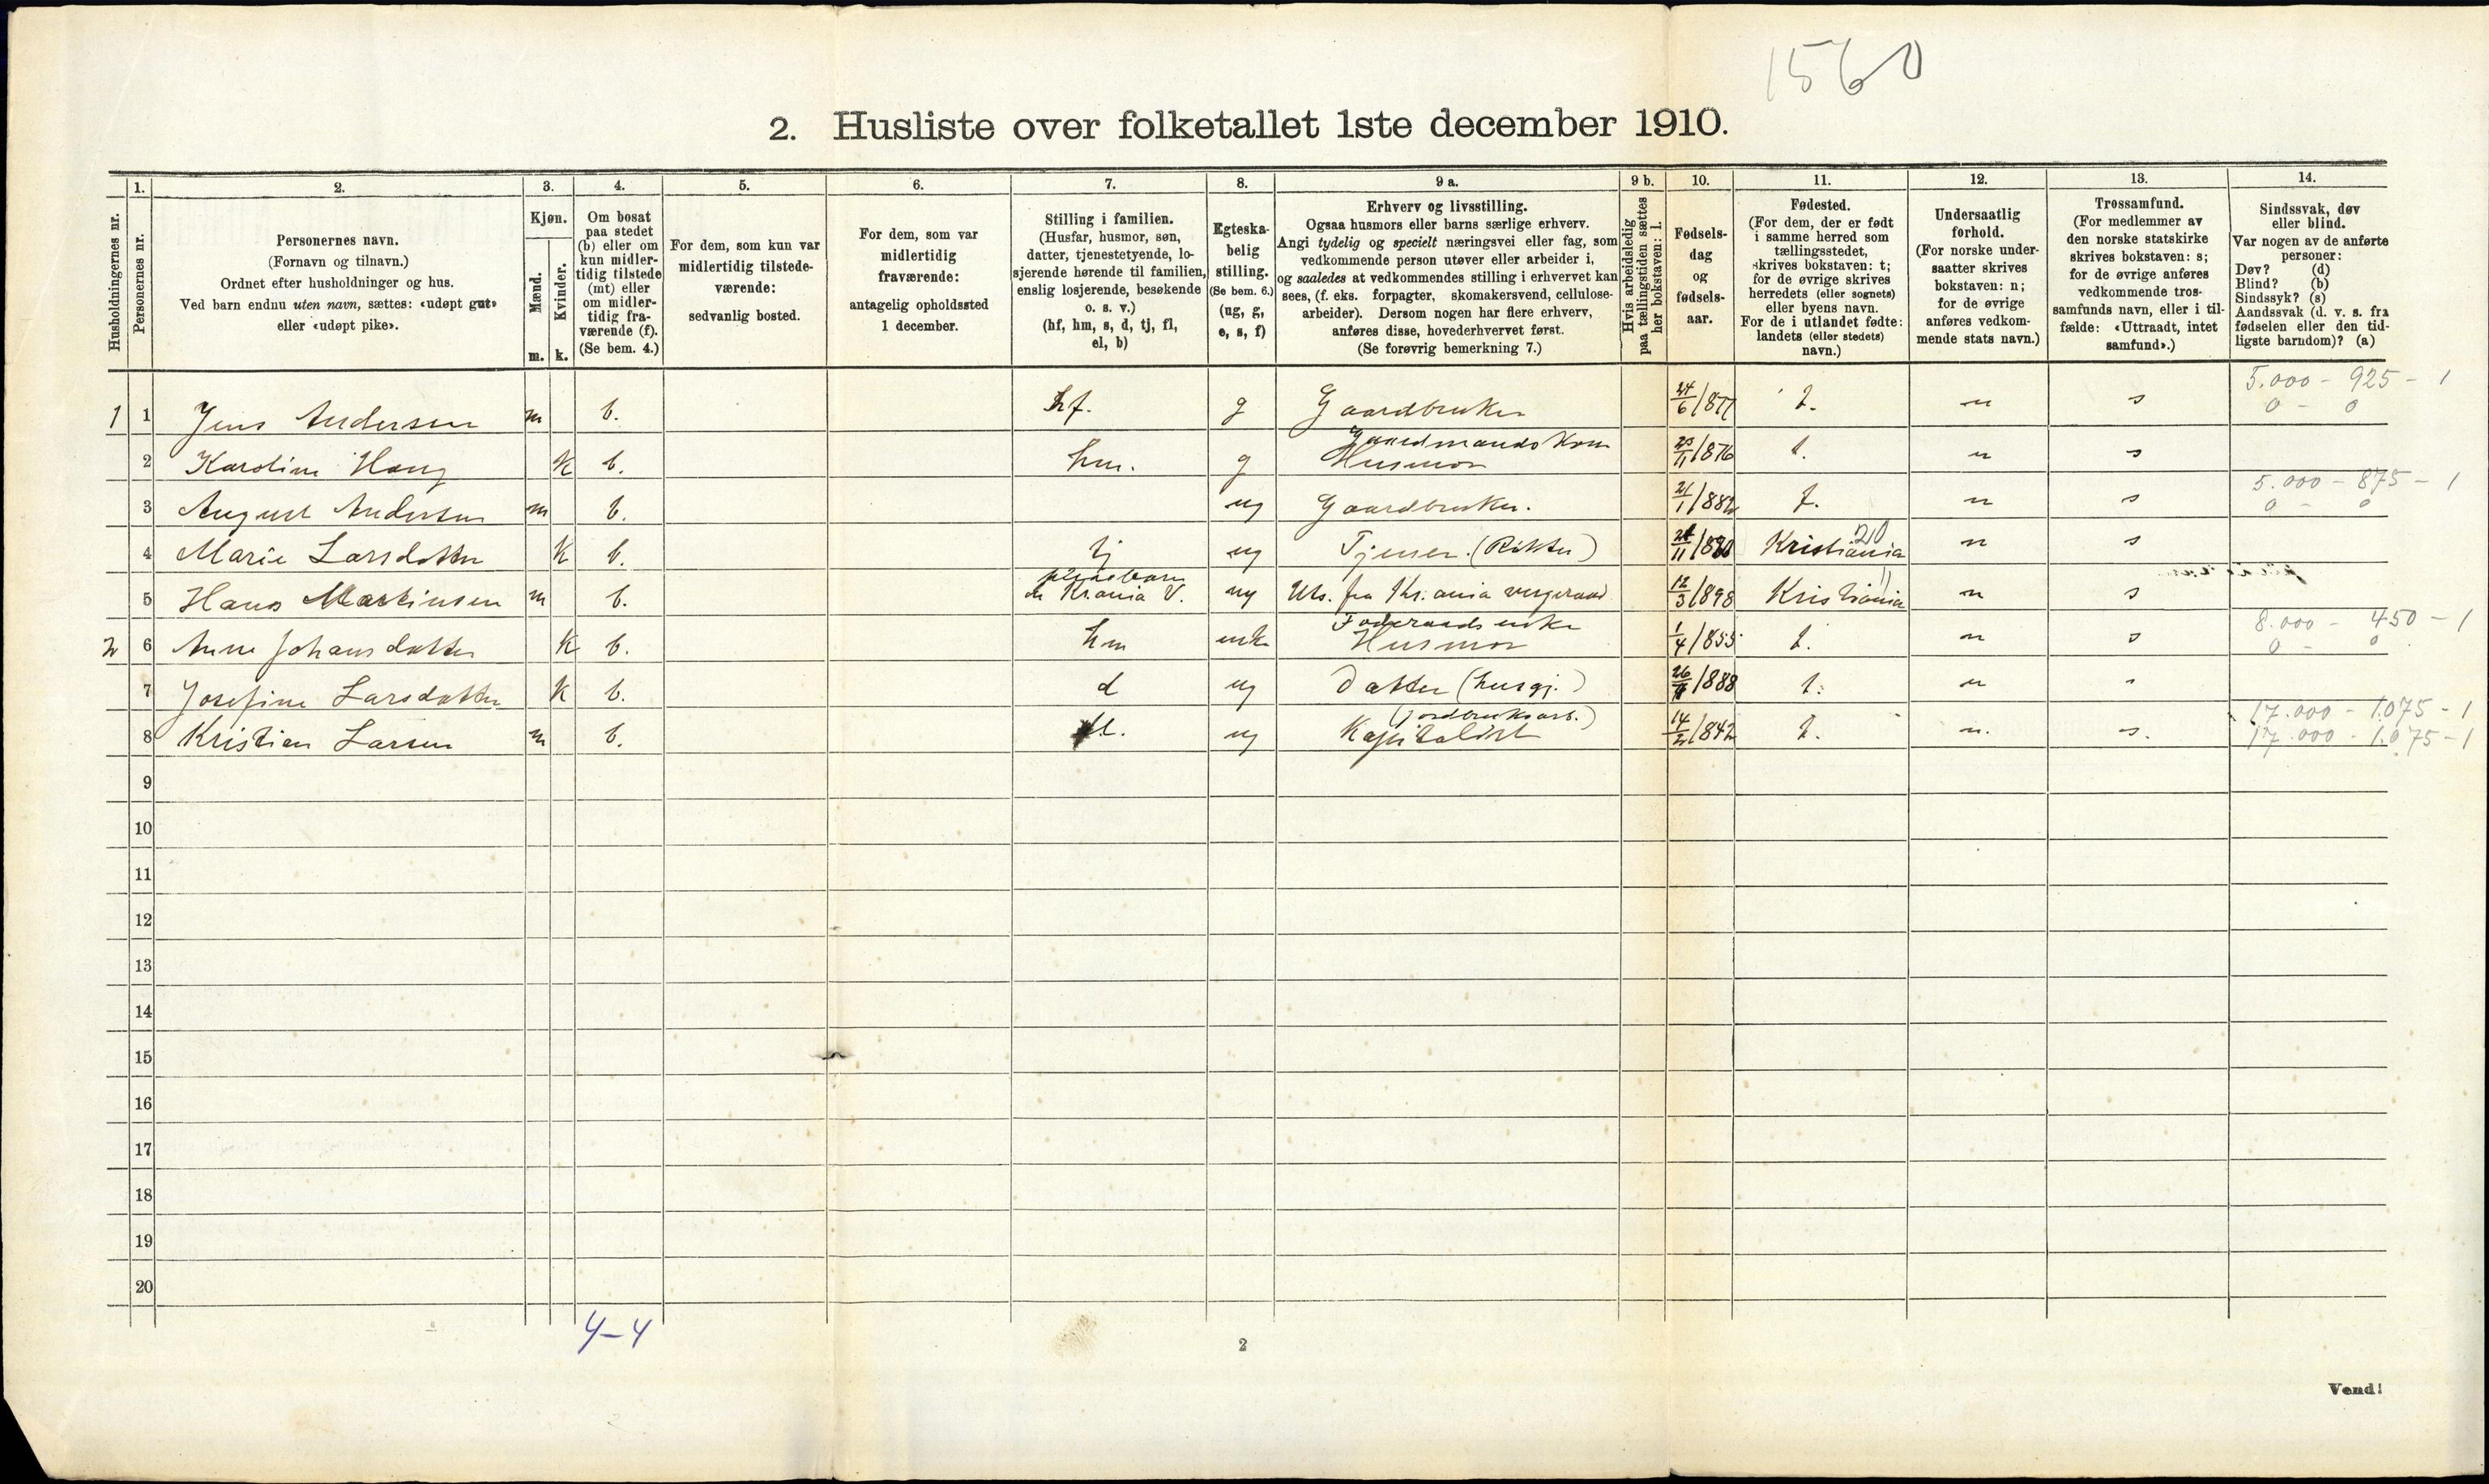 1560
2. Husliste over folketallet 1ste december 1910.
Husholdningernes nr.
1.
Personernes nr.
2.
Personernes navn.
(Fornavn og tilnavn.)
Ordnet efter husholdninger og hus.
Ved barn endnu uten navn, sættes: «udøpt gut»
eller «udøpt pike».
3.
Kjøn.
Mænd.
m.
Kvinder.
k.
4.
Om bosat
paa stedet
(b) eller om
kun midler-
tidig tilstede
(mt) eller
om midler-
tidig fra-
værende (f).
(Se bem. 4.)
5.
For dem, som kun var
midlertidig tilstede-
værende:
sedvanlig bosted.
6.
For dem, som var
midlertidig
fraværende:
antagelig opholdssted
1 december.
7.
Stilling i familien.
(Husfar, husmor, søn,
datter, tjenestetyende, lo-
sjerende hørende til familien,
enslig losjerende, besøkende
o. s. v.)
(hf, hm, s, d, tj, fl,
el, b)
8.
Egteska-
belig
stilling.
(Se bem. 6.)
(ug, g,
e, s, f)
9 a.
Erhverv og livsstilling.
Ogsaa husmors eller barns særlige erhverv.
Angi tydelig og specielt næringsvei eller fag, som
vedkommende person utøver eller arbeider i,
og saaledes at vedkommendes stilling i erhvervet kan
sees, (f. eks. forpagter, skomakersvend, cellulose-
arbeider). Dersom nogen har flere erhverv,
anføres disse, hovederhvervet først.
(Se forøvrig bemerkning 7.)
9 b.
Hvis arbeidsledig
paa tællingstiden sættes
her bokstaven: l.
10.
Fødsels-
dag
og
fødsels-
aar.
11.
Fødested.
(For dem, der er født
i samme herred som
tællingsstedet,
skrives bokstaven: t;
for de øvrige skrives
herredets (eller sognets)
eller byens navn.
For de i utlandet fødte:
landets (eller stedets)
navn.)
12.
Undersaatlig
forhold.
(For norske under-
saatter skrives
bokstaven: n;
for de øvrige
anføres vedkom-
mende stats navn.)
13.
Trossamfund.
(For medlemmer av
den norske statskirke
skrives bokstaven: s;
for de øvrige anføres
vedkommende tros-
samfunds navn, eller i til-
fælde: «Uttraadt, intet
samfund».)
14.
Sindssvak, døv
eller blind.
Var nogen av de anførte
personer:
Døv? (d)
Blind? (b)
Sindssyk? (s)
Aandssvak (d. v. s. fra
fødselen eller den tid-
ligste barndom)? (a)
5.000 - 925 - 1
0 - 0
1 1 Jens Andersen m b. hf. g Gaardbruker 24/6 1877 t. n s
Gaardmandskone
2 Karoline Haug k b. hm. g Husmor /11 1876 t. n s
5.000 - 875 - 1
0 - 0
3 August Andersen m b. ug Gaardbruker. 21/1 1882 t. n s
20
4 Marie Larsdatter k b. tj ug Tjener. /11 Kristiania n s
pleiebarn 11
5 Hans Martinsen m b. Krania V. ug Uts. fra Kr.ania vergeraad 12/3 1898 Kristiania n s
Føderaadsenke 8.000 - 450 - 1
0 - 0
2 6 Anne Johansdatter k b. hm enke Husmor 1/4 1855 t. n s
7 Josefine Larsdatter k b. d ug Datter (husgj.) 26/ 1888 t. n s
(jordbruksarb.) 17.000 - 1.075 - 1
8 Kristian Larsen m b. fl. ug Kapitalist 14/2 1842 t. n. s. 17.000 - 1.075 - 1
9
10
11
12
13
14
15
16
17
18
19
20
4-4
2
Vend!